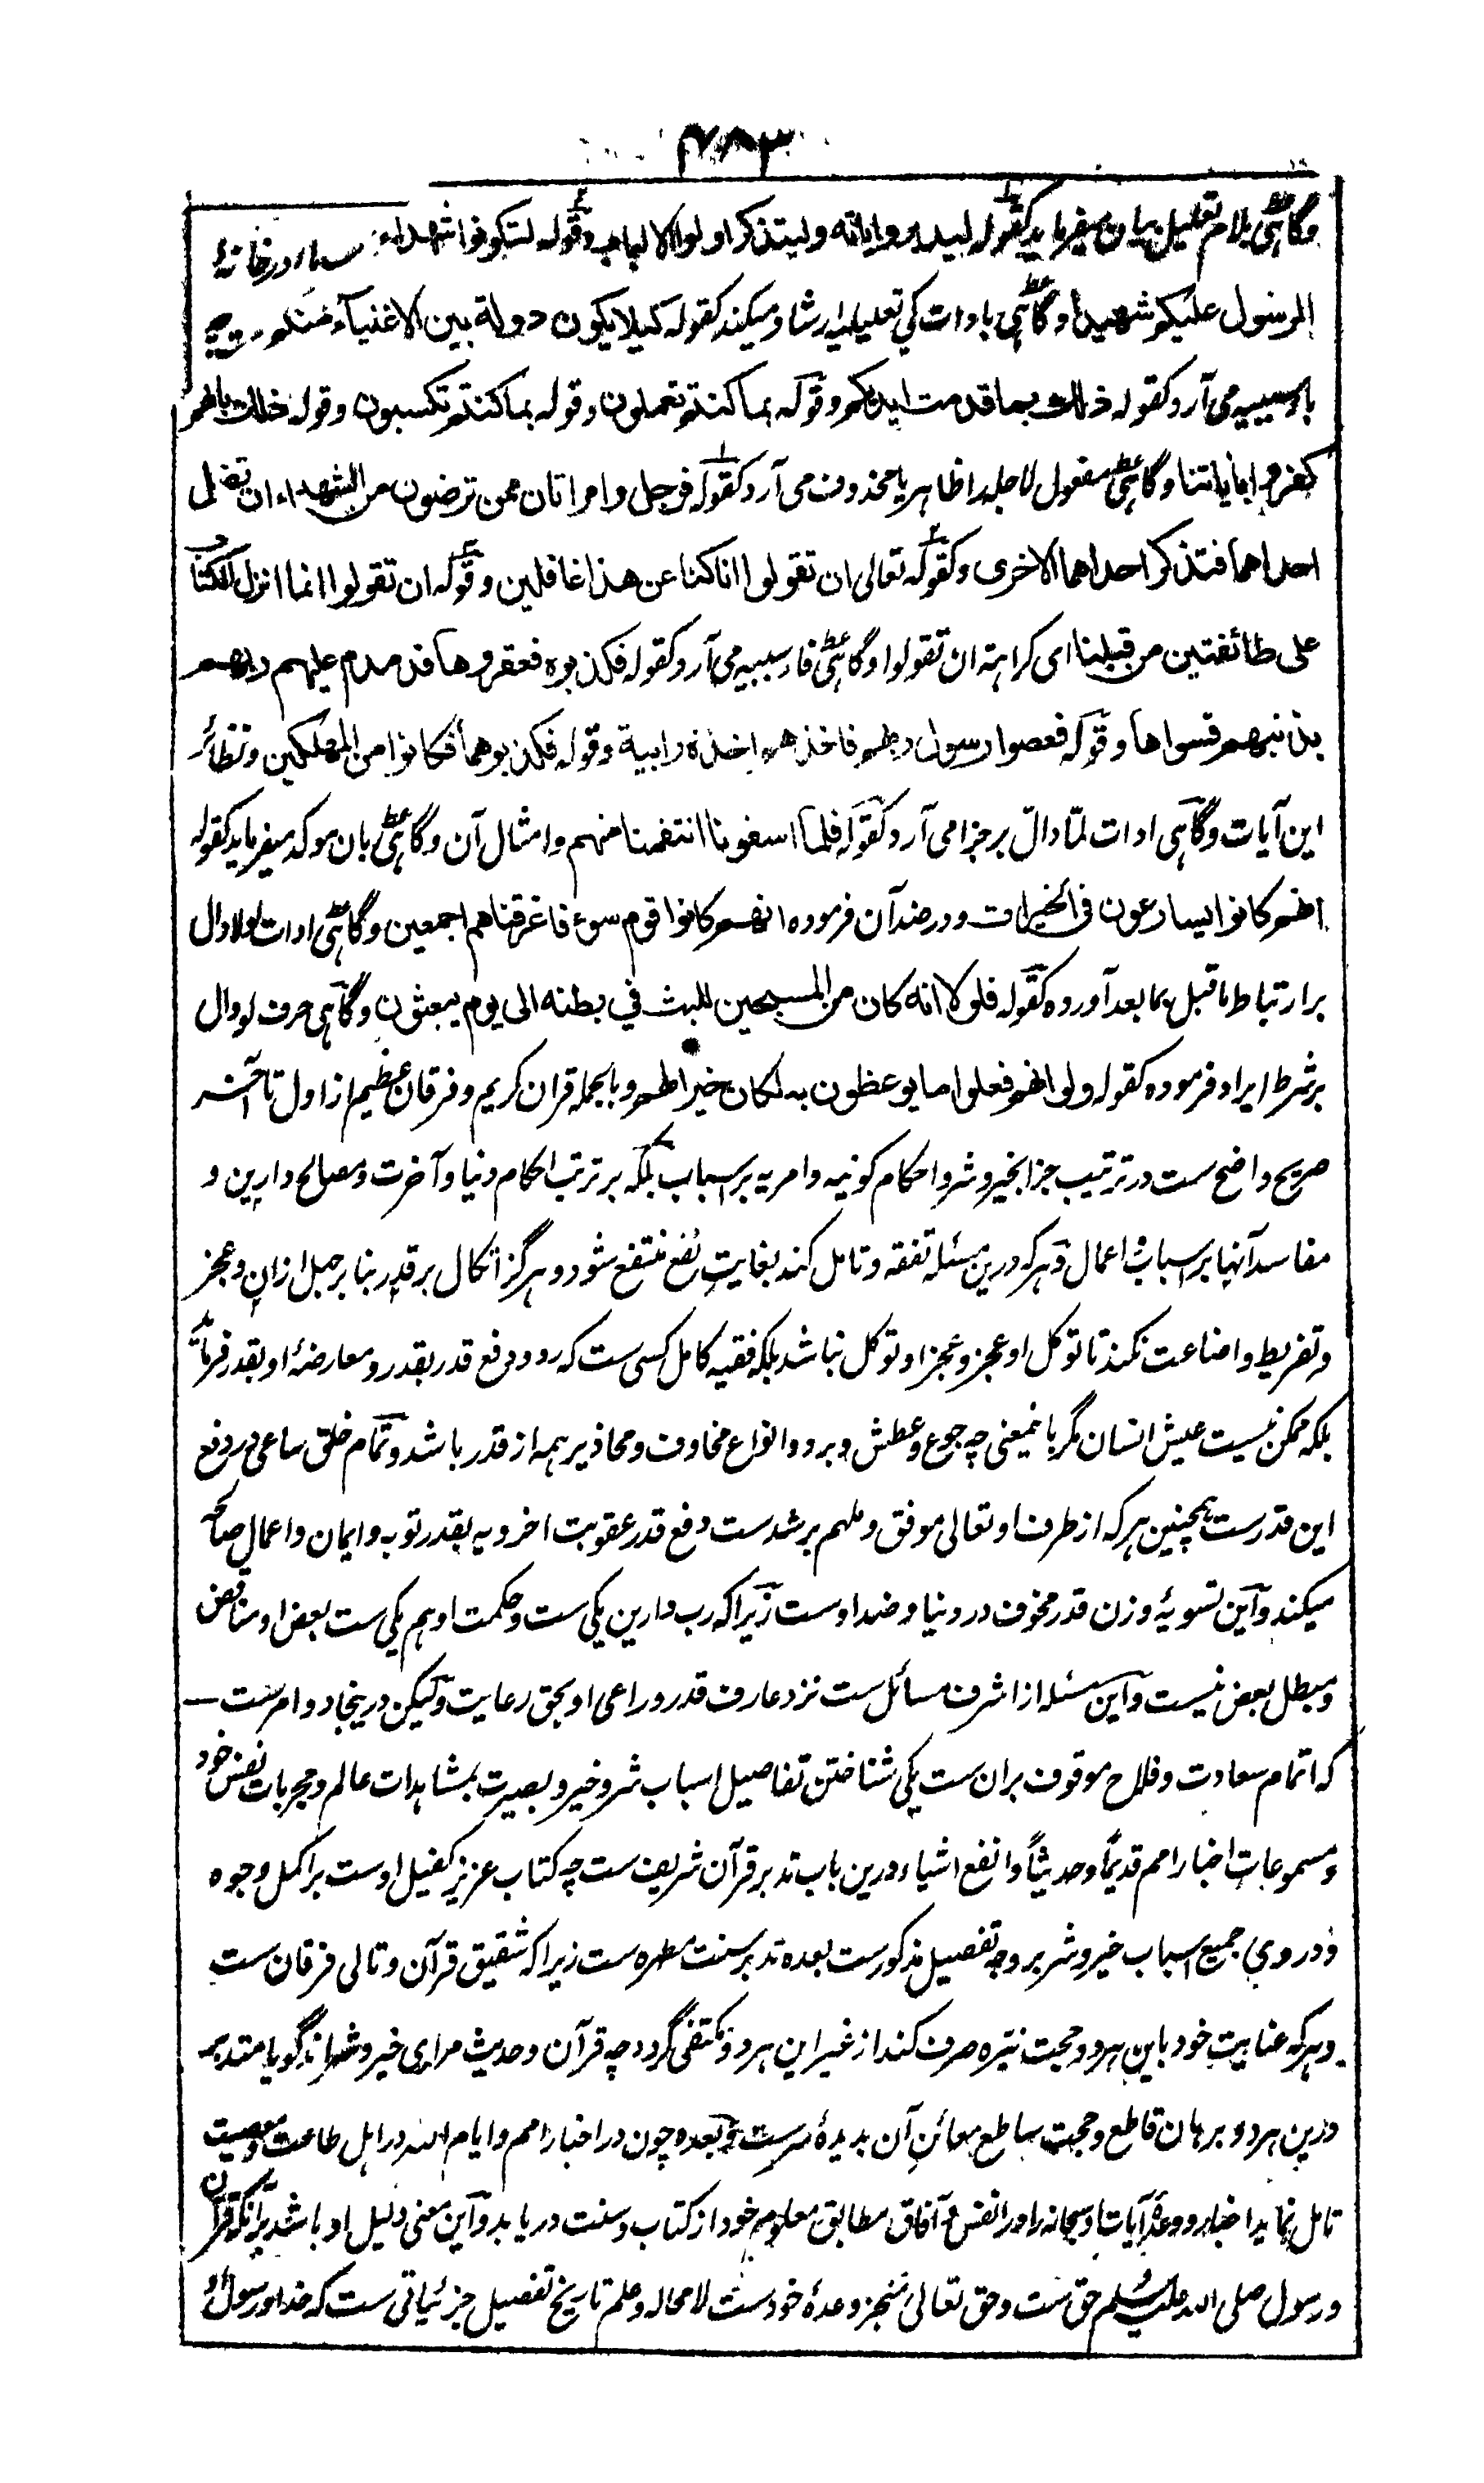 ۷۸۳
وگاهی بلام تعلیل بیان میفرماید کقوله لیدبروا ایاته ولیتذکر اولوا الالباب وقوله لتکونوا شهداء
الرسول علیکم شهیدا وگاهی بادات کی تعلیلیه ارشاد میکند کقوله کیلا یکون دولة بین الاغنیاء منکم
باء سببیه می آرد کقوله ذلک بما قدمت ایدیکم وقوله بما کنتم تعملون وقوله بما کنتم تکسبون وقوله ذلک بانهم
کفروا بایاتنا وگاهی مفعول لاجله را ظاهر یا محذوف می آرد کقوله فرجل وامراتان ممن ترضون من الشهداء ان تضل
احداهما فتذکر احداهما الاخری وکقوله تعالی ان تقولوا انا کنا عن هذا غافلین وقوله ان تقولوا انما انزل الکتاب
علی طائفتین من قبلنا ای کراهته ان تقولوا وگاهی فاء سببیه می آرد کقوله فکذبوه فعقروها فدمدم علیهم ربهم
بذنبهم فسواها وقوله فعصوا رسول ربهم فاخذهم اخذة رابیة وقوله فکذبوهما فکانوا من المهلکین ونظائر
این آیات وگاهی ادات لمّا دالّ بر جزا می آرد کقوله فلما اسفونا انتقمنا منهم وامثال آن وگاهی بان موکد میفرماید کقوله
انهم کانوا یسارعون فی الخیرات ودر ضد آن فرموده انهم کانوا قوم سوء فاغرقناهم اجمعین وگاهی ادات لولا دال
بر ارتباط ما قبل بما بعد آورده کقوله فلولا انه کان من المسبحین للبث فی بطنه الی یوم یبعثون وگاهی حرف لو دال
بر شرط ایراد فرموده کقوله ولو انهم فعلوا ما یوعظون به لکان خیرا لهم وبالجمله قران کریم وفرقان عظیم از اول تا آخر
صریح واضح ست در ترتیب جزا بخیر وشر واحکام کونیه وامریه بر اسباب بلکه بر ترتب احکام دنیا وآخرت ومصالح دارین و
مفاسد آنها بر اسباب اعمال وهرکه درین مسئله تفقه وتامل کند بغایت نفع منتفع شود وهرگز اتکال بر قدر بنا بر جهل ازان وعجز
وتفریط واضاعت نکند تا توکل او عجز وعجز او توکل نباشد بلکه فقیه کامل کسی ست که رد ودفع قدر بقدر ومعارضهٔ او بقدر فرماید
بلکه ممکن نیست عیش انسان مگر باینمعنی چه جوع وعطش وبرد وانواع مخاوف ومحاذیر همه از قدر باشد وتمام خلق ساعی در دفع
این قدرست همچنین هرکه از طرف او تعالی موفق وملهم برشدست دفع قدر عقوبت اخرویه بقدر توبه وایمان واعمال صالحه
میکند وآین تسویهٔ وزن قدر مخوف در دنیا وضد اوست زیرا که رب دارین یکی ست وحکمت او هم یکی ست بعض او مناقض
ومبطل بعض نیست وآین مسئله از اشرف مسائل ست نزد عارف قدر وراعی او بحق رعایت ولیکن درینجا دو امرست
که اتمام سعادت وفلاح موقوف بران ست یکی شناختن تفاصیل اسباب شر وخیر وبصیرت بمشاهدات عالم ومجربات نفس خود
ومسموعات اخبار امم قدیماً وحدیثاً وانفع اشیاء درین باب تدبر قرآن شریف ست چه کتاب عزیز کفیل اوست بر اکمل وجوه
ودر وی جمیع اسباب خیر وشر بر وجه تفصیل مذکورست بعده تدبر سنت مطهره ست زیرا که شقیق قرآن وتالی فرقان ست
وهرکه عنایت خود باین هر دو حجت نیّره صرف کند از غیر این هر دو مکتفی گردد چه قرآن وحدیث مرایی خیر وشر اند گویا متدبر
درین هر دو برهان قاطع وحجت ساطع معائن آن بدیدهٔ سرست وبعده چون در اخبار امم وایام الله در اهل طاعت ومعصیت
تامل نماید اخبار ووعدهٔ آیات او سبحانه را در انفس وآفاق مطابق معلوم خود از کتاب وسنت دریابد وآین معنی دلیل او باشد برآنکه قرآن
ورسول صلی الله علیه وسلم حق ست وحق تعالی منجز وعدهٔ خودست لا محاله وعلم تاریخ تفصیل جزئیاتی ست که خدا ورسول او